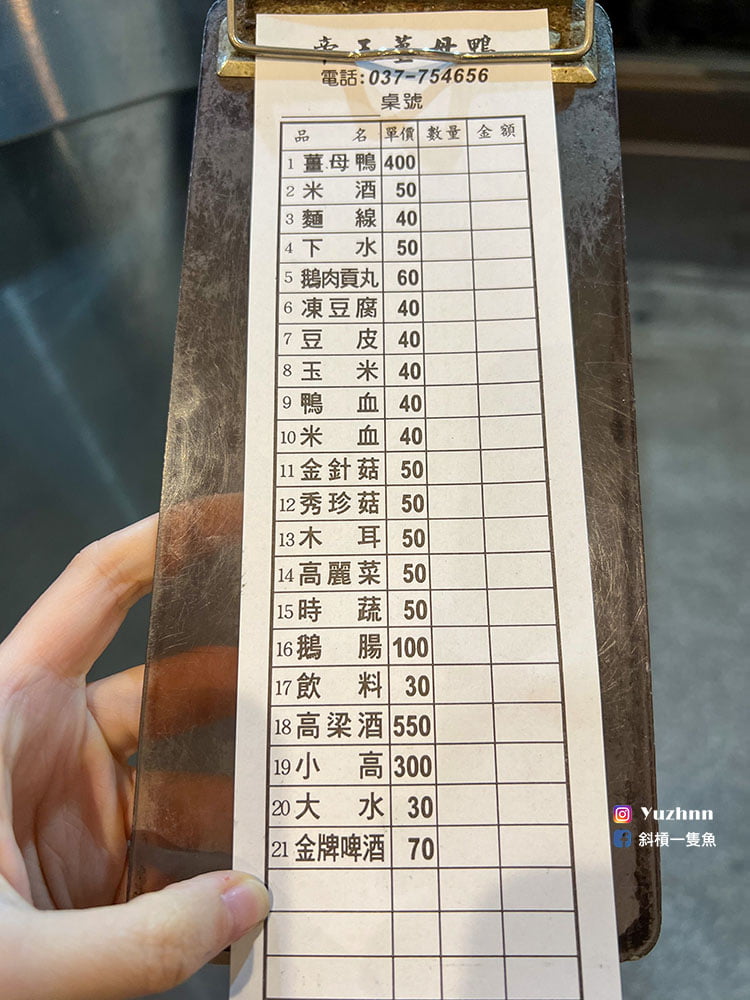 帝王薑母鴨
電話:037-754656
桌號
品名 單價 數量 金額
1 薑母鴨 400
2 米酒 50
3 麵線 40
4 下水 50
5 鵝肉貢丸 60
6 凍豆腐 40
7 豆皮 40
8 玉米 40
9 鴨血 40
10 米血 40
11 金針菇 50
12 秀珍菇 50
13 木耳 50
14 高麗菜 50
15 時蔬 50
16 鵝腸 100
17 飲料 30
18 高梁酒 550
19 小高 300
20 大水 30
21 金牌啤酒 70
Yuzhnn
斜槓一隻魚